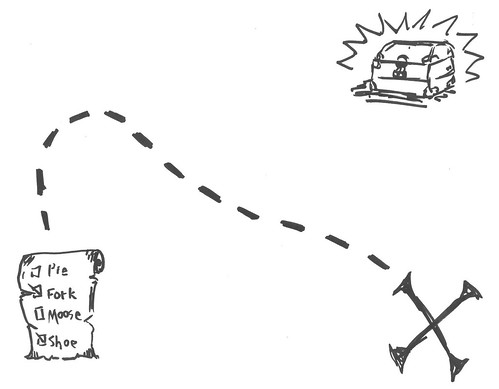 Pie
Fork
Moose
Shoe